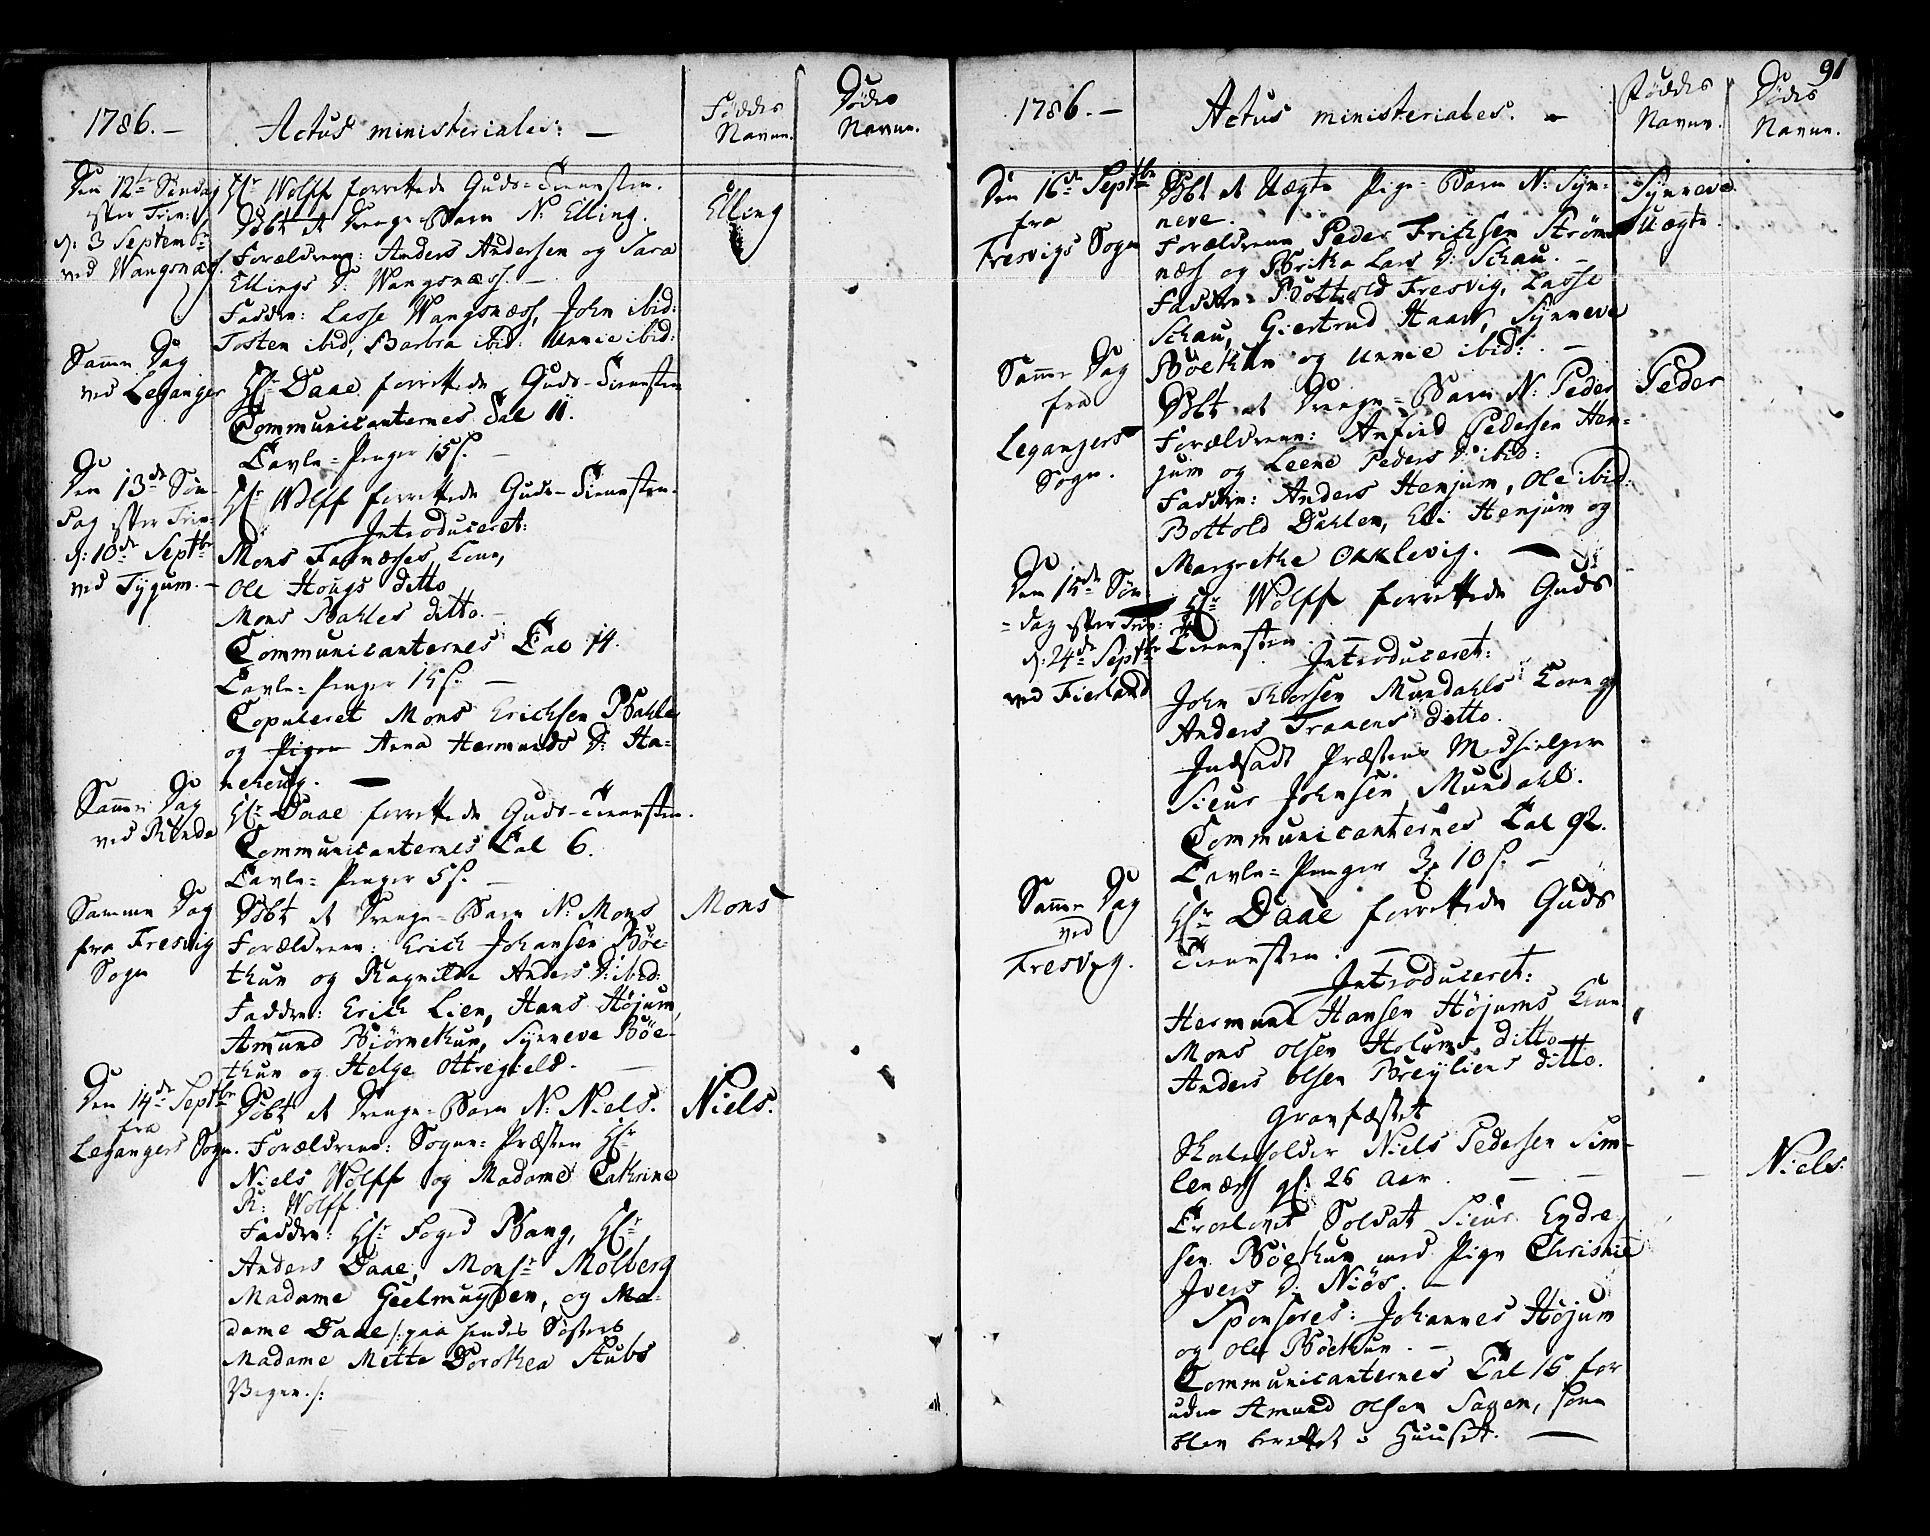 1786. –
Actus ministeriales: –
Føddes Navne.
Dødes Navne.
Den 12te Søndag
efter Trin:
d: 3 Septembr
ved Wangsnæs.
Hr Wolff forrettede Guds-Tienesten.
Døbt et Drenge-Barn N: Elling.
Forældrene: Anders Andersen og Sara
Ellings D: Wangsnæss. –
Faddre: Lasse Wangsnæss, John ibid:
Tosten ibid, Barbra ibid: Unnie ibid:
Elling
Samme Dag
ved Leganger
Hr Daae forrettede Guds-Tienesten
Communicanternes Tal 11.
Tavle-Penger 15 s. –
Den 13de Søn-
dag efter Trin:
d: 10de Septbr
ved Tygum. –
Hr Wolff forrettede Guds-Tienesten.
Introduceret:
Mons Farnæsses Kone,
Ole Hougs ditto
Mons Bahles ditto. –
Communicanternes Tal 14.
Tavle-Penger 15 s. –
Copuleret Mons Erichsen Bahle
og Pigen Anna Hermunds D: Ha-
nekeug. –
Samme Dag
ved Rinde
Hr Daae forrettede Guds-Tienesten.
Communicanternes Tal 6.
Tavle-Penger 5 s. –
Samme Dag
fra Fresvig
Sogn
Døbt et Drenge-Barn N: Mons
Forældrene: Erich Johansen Bøe-
thun og Ragnilda Anders D: ibid:
Faddre: Erich Lien, Hans Højum,
Amund Biørnethun, Synneve Bøe-
thun og Helge Ottregield. –
Mons
Den 14de Septbr
fra
Legangers Sogn.
Døbt et Drenge-Barn N: Niels.
Forældrene: Sogne-Præsten Hr
Niels Wolff og Madame Cathrine
R: Wolff.
Faddre: Hr Foged Bang, Hr
Anders Daae, Monsr Molberg
Madame Geelmuyden, og Ma-
dame Daae /: paa hendes Søsters
Madame Mette Dorothea Stubs
Vegne. :/
Niels.
91
1786. –
Actus ministeriales. –
Føddes Navne.
Dødes Navne.
Den 16de Septbr
fra
Fresvigs Sogn
Døbt et Uægte Pige-Barn N: Syn-
neve.
Forældrene Peder Frichsen Strøm-
næss og Britha Lars D: Schau. –
Faddre: Bottold Fresvig, Lasse
Schau, Giertrud Haars, Synneve
Bøethun og Unnie ibid: –
Synneve
Uægte.
Samme Dag
fra
Legangers
Sogn.
Døbt et Drenge-Barn N: Peder
Forældrene: Anfind Pedersen Hen-
jum og Leene Peders D: ibid:
Faddre: Anders Henjum, Ole ibid:
Bottold Dahlen, Eli Henjum og
Margrethe Okklevig. –
Peder
Den 15de Søn
-dag efter Trin:
d: 24de Septbr
ved Fierland
Hr Wolff forrettede Guds
Tienesten. –
Introduceret:
John Thorsen Mundahls Kone og
Anders Traaens ditto.
Indsadt Præstens Medhielper
Sieur Johnsen Mundahl.
Communicanternes Tal 92.
Tavle-Penger 3 10 s. –
Samme Dag
ved
Fresvig.
Hr Daae forrettede Guds
Tienesten. –
Introduceret:
Hermund Hansen Højums Kone
Mons Olsen Holums ditto
Anders Olsen Breyliens ditto.
Gravfæstet
Niels Pedersen Sim-
lenæss gl: 26 Aar. –
Niels.
Trolovet Soldat Sieur Endre
sen Bøethun med Pige Christine
Ivers D: Niøs. –
Sponsores: Johannes Højum
og Ole Bøethun. –
Communicanternes Tal 15 for
uden Amund Olsen Sagen, som
blev berettet i Huuset. –